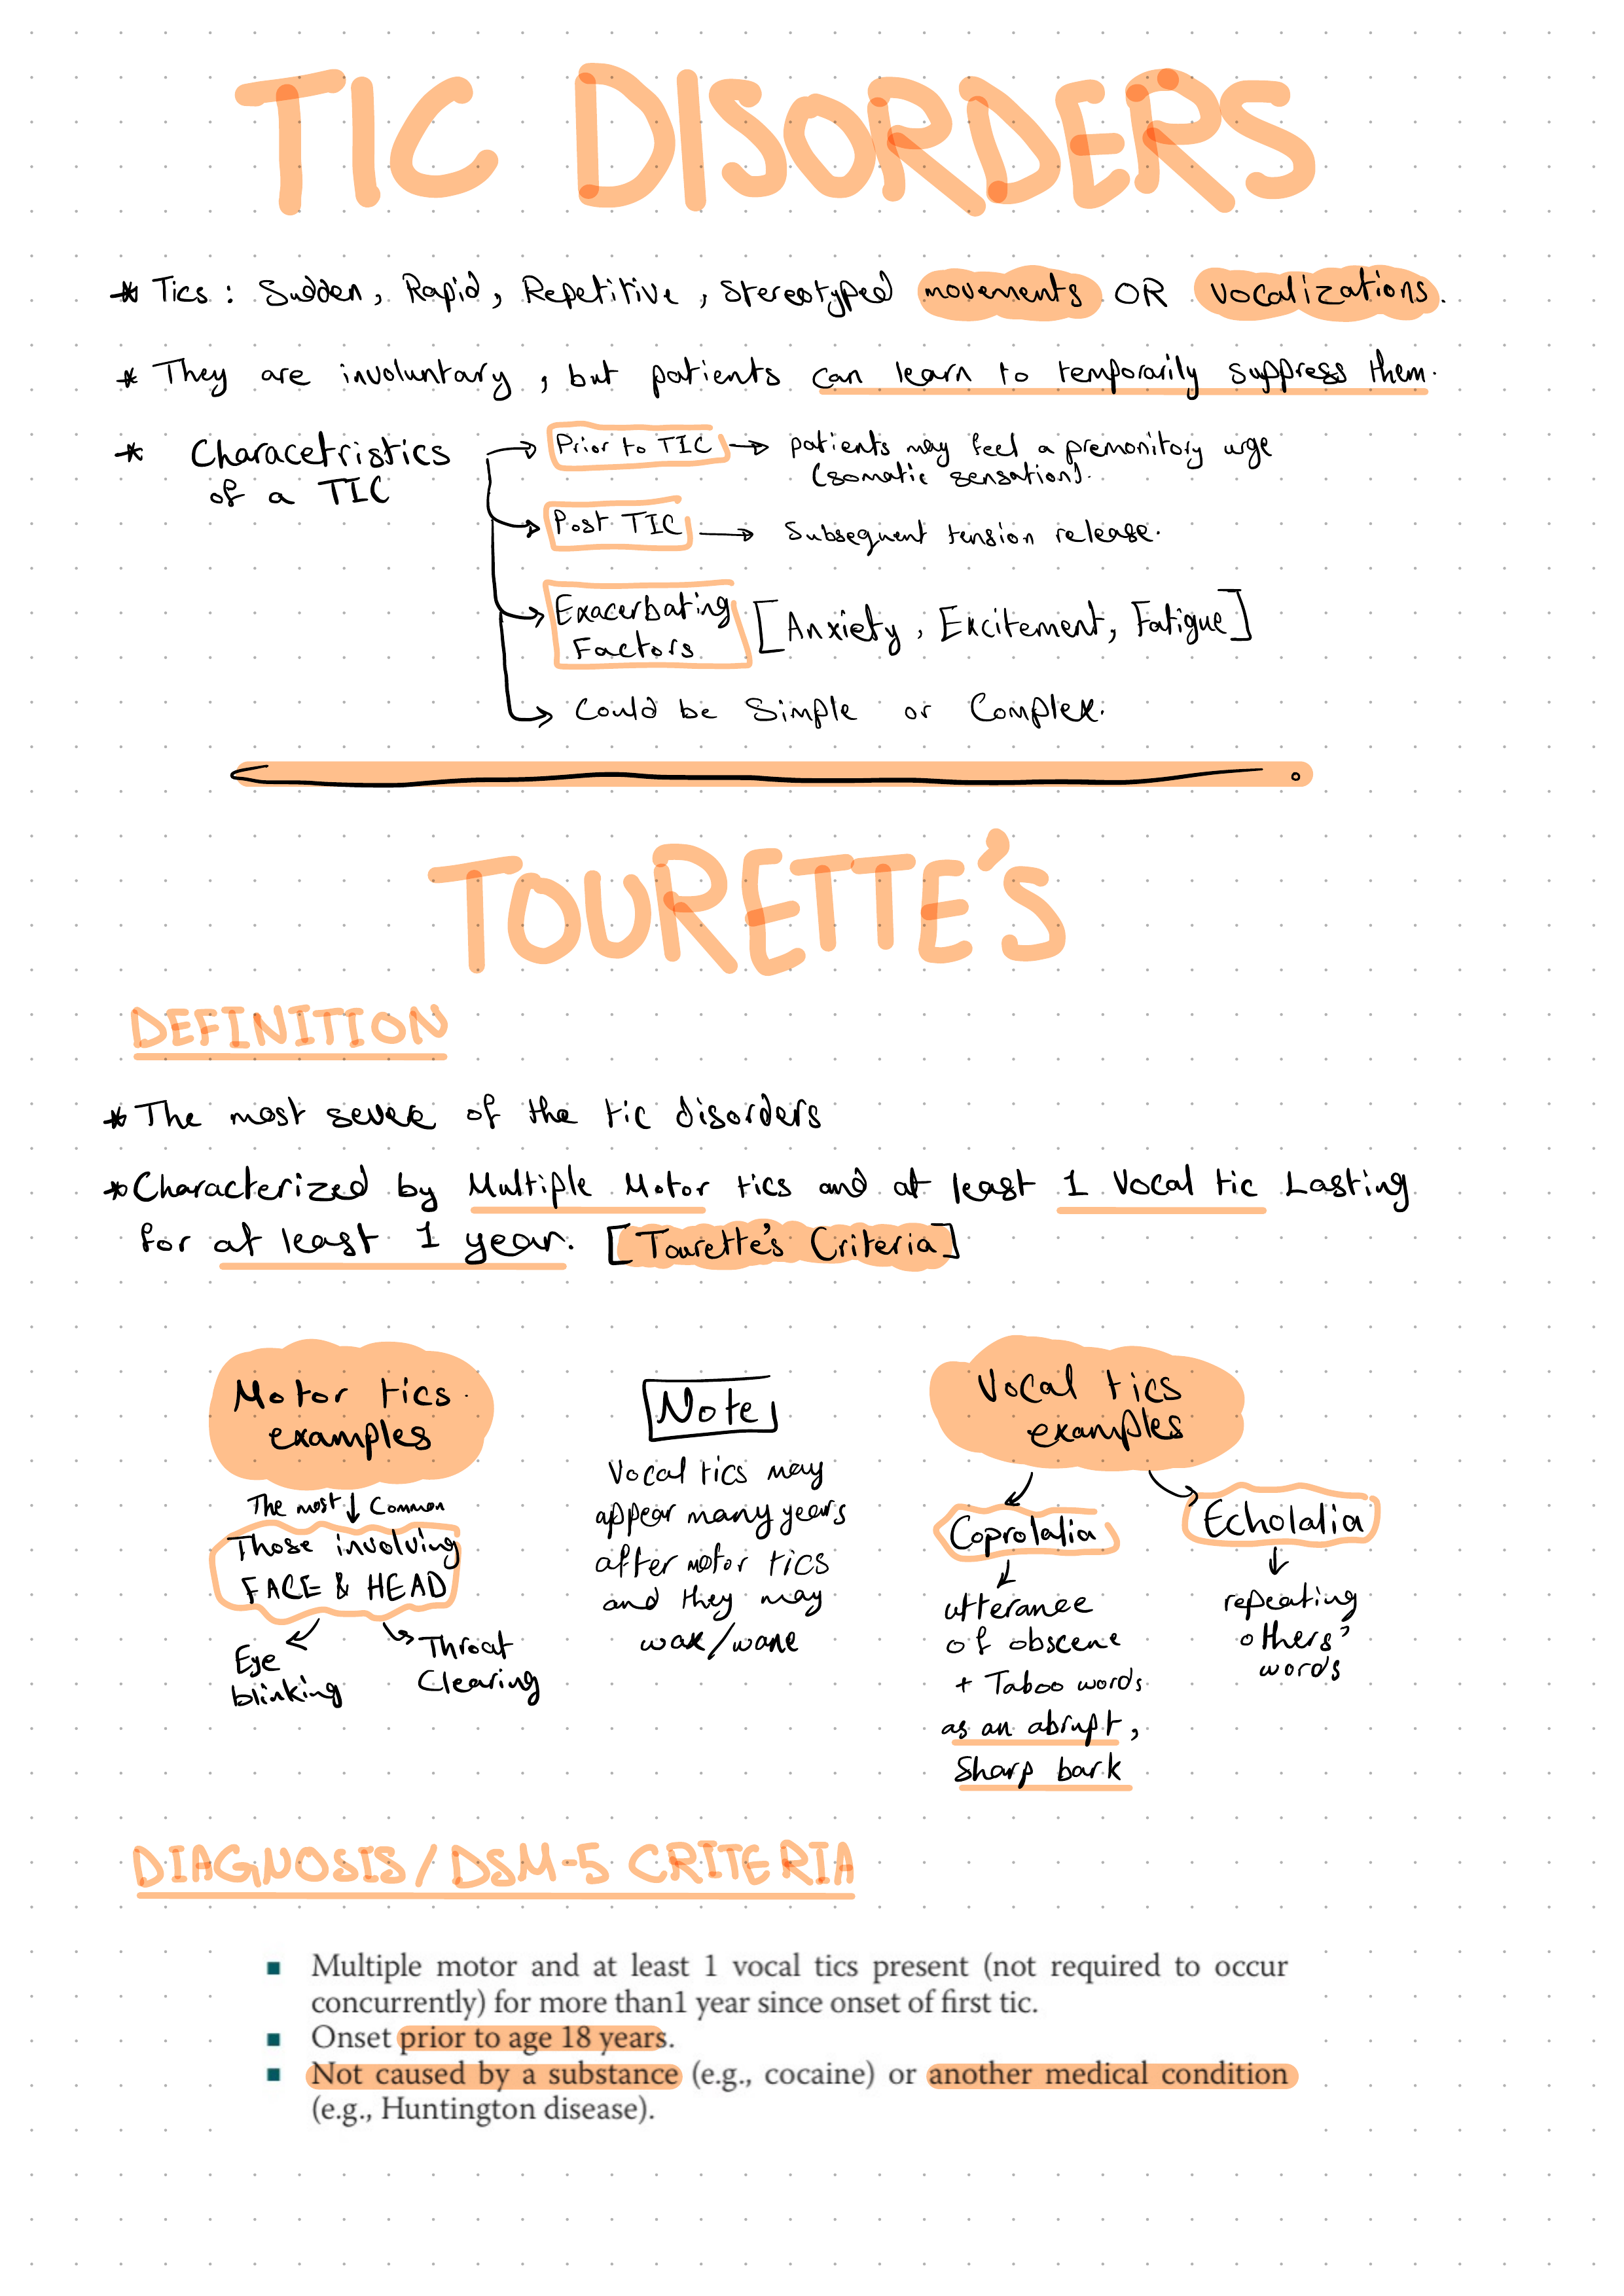 TIC DISORDERS
* Tics : Sudden, Rapid, Repetitive, Stereotyped movements OR vocalizations.
* They are involuntary, but patients can learn to temporarily suppress them.
* Characetristics
of a TIC
Prior to TIC → patients may feel a premonitory urge
(somatic sensation).
Post TIC → Subsequent tension release.
Exacerbating
Factors
[Anxiety, Excitement, Fatigue]
Could be Simple or Complex.
TOURETTE'S
DEFINITION
* The most severe of the tic disorders
* Characterized by Multiple Motor tics and at least 1 Vocal tic Lasting
for at least 1 year. [Tourette's Criteria]
Motor tics
examples
The most Common
Those involving
FACE & HEAD
Eye
blinking
Throat
Clearing
Note
Vocal tics may
appear many years
after motor tics
and they may
wax/wane
Vocal tics
examples
Coprolalia
utterance
of obscene
+ Taboo words
as an abrupt,
Sharp bark
Echolalia
repeating
others'
words
DIAGNOSIS/DSM-5 CRITERIA
▪ Multiple motor and at least 1 vocal tics present (not required to occur
concurrently) for more than1 year since onset of first tic.
▪ Onset prior to age 18 years.
▪ Not caused by a substance (e.g., cocaine) or another medical condition
(e.g., Huntington disease).